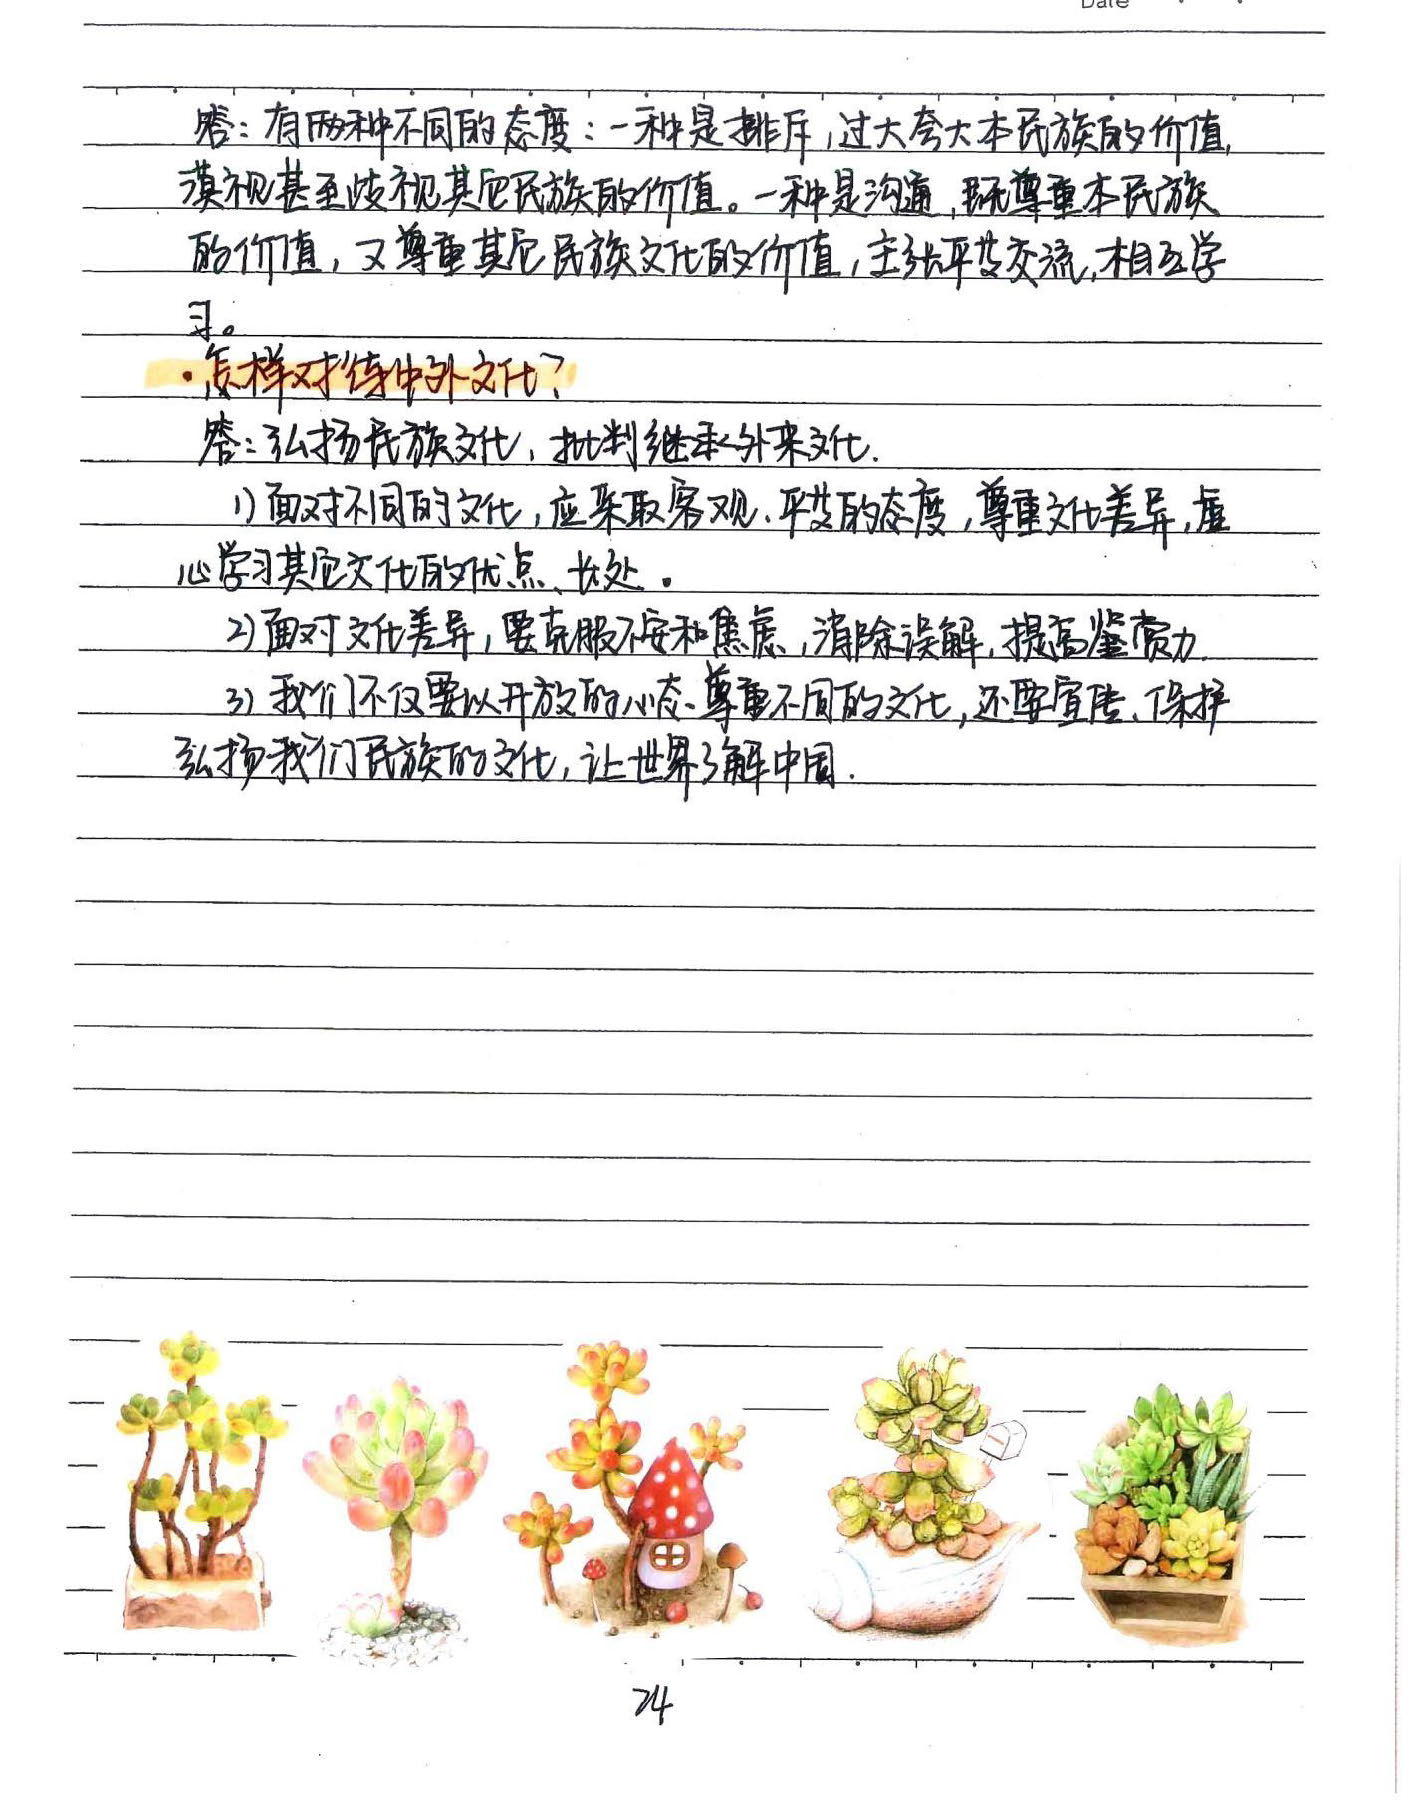 Date
答：有两种不同的态度：一种是排斥，过大夸大本民族的价值，
漠视甚至歧视其它民族的价值。一种是沟通，既尊重本民族
的价值，又尊重其它民族文化的价值，主张平等交流，相互学
习。
·怎样对待中外文化？
答：弘扬民族文化，批判继承外来文化.
1) 面对不同的文化，应采取客观、平等的态度，尊重文化差异，虚
心学习其它文化的优点、长处。
2) 面对文化差异，要克服不安和焦虑，消除误解，提高鉴赏力.
3) 我们不仅要以开放的心态、尊重不同的文化，还要宣传、保护
弘扬我们民族的文化，让世界了解中国.
24